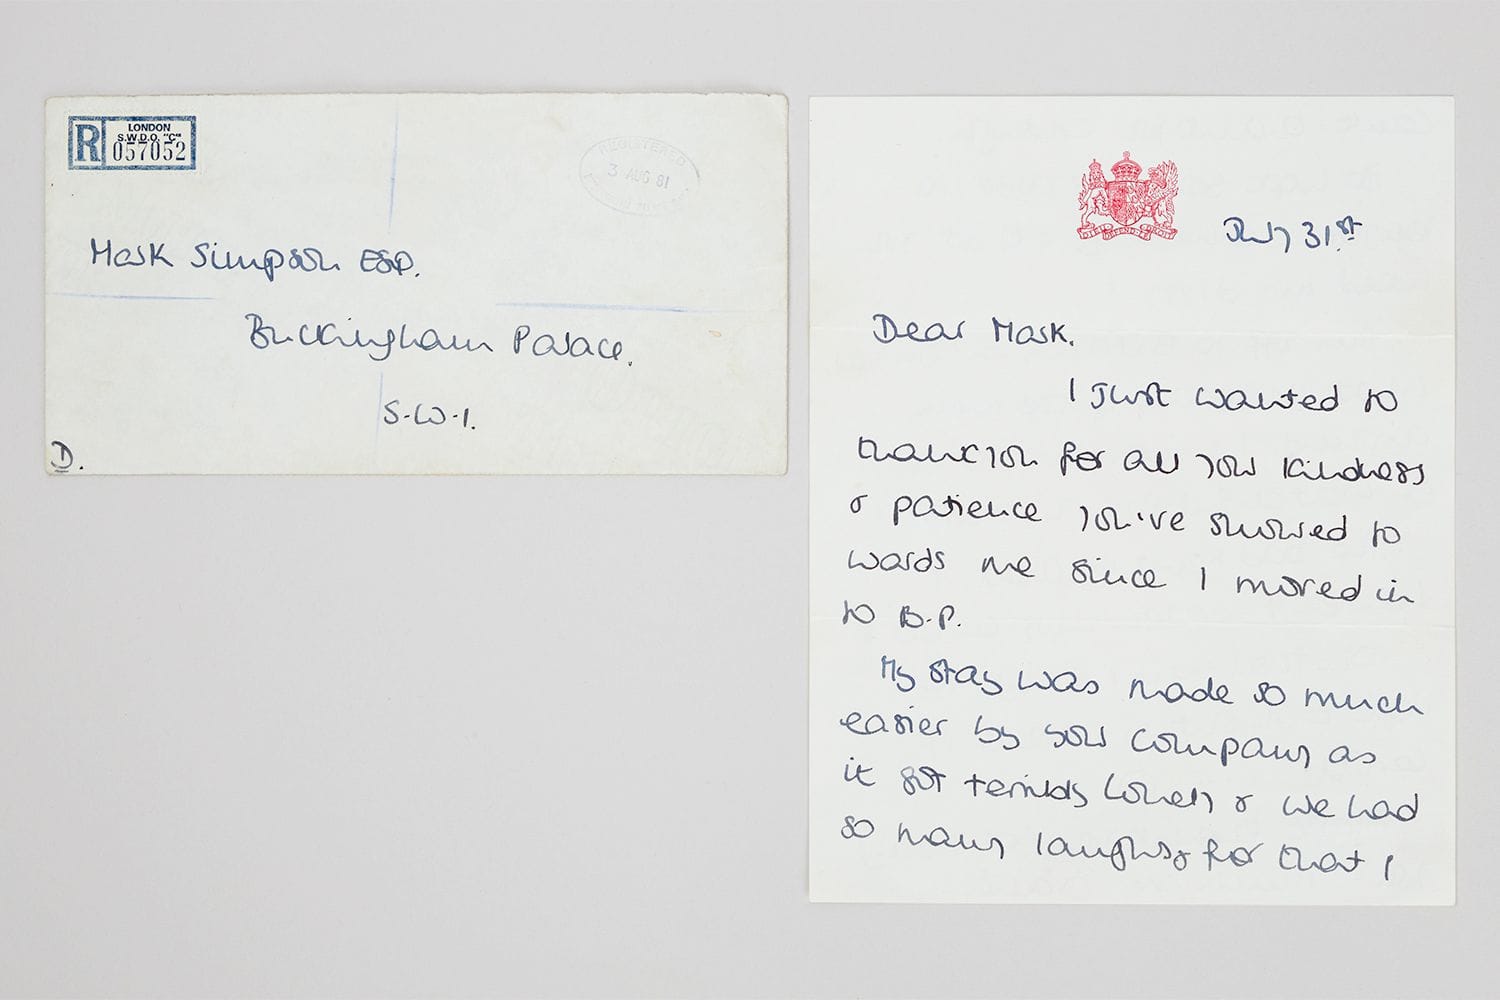 R
LONDON
S.W.D.O. "C"
057052
REGISTERED
3 AUG 81
Mark Simpson ESQ.
Buckingham Palace.
S.W.1.
D.
July 31st
Dear Mark.
I just wanted to
thank you for all your kindness
& patience you've showed to
wards me since I moved in
to B.P.
My stay was made so much
easier by your company as
it got terribly lonely & we had
so many laughs, for that I